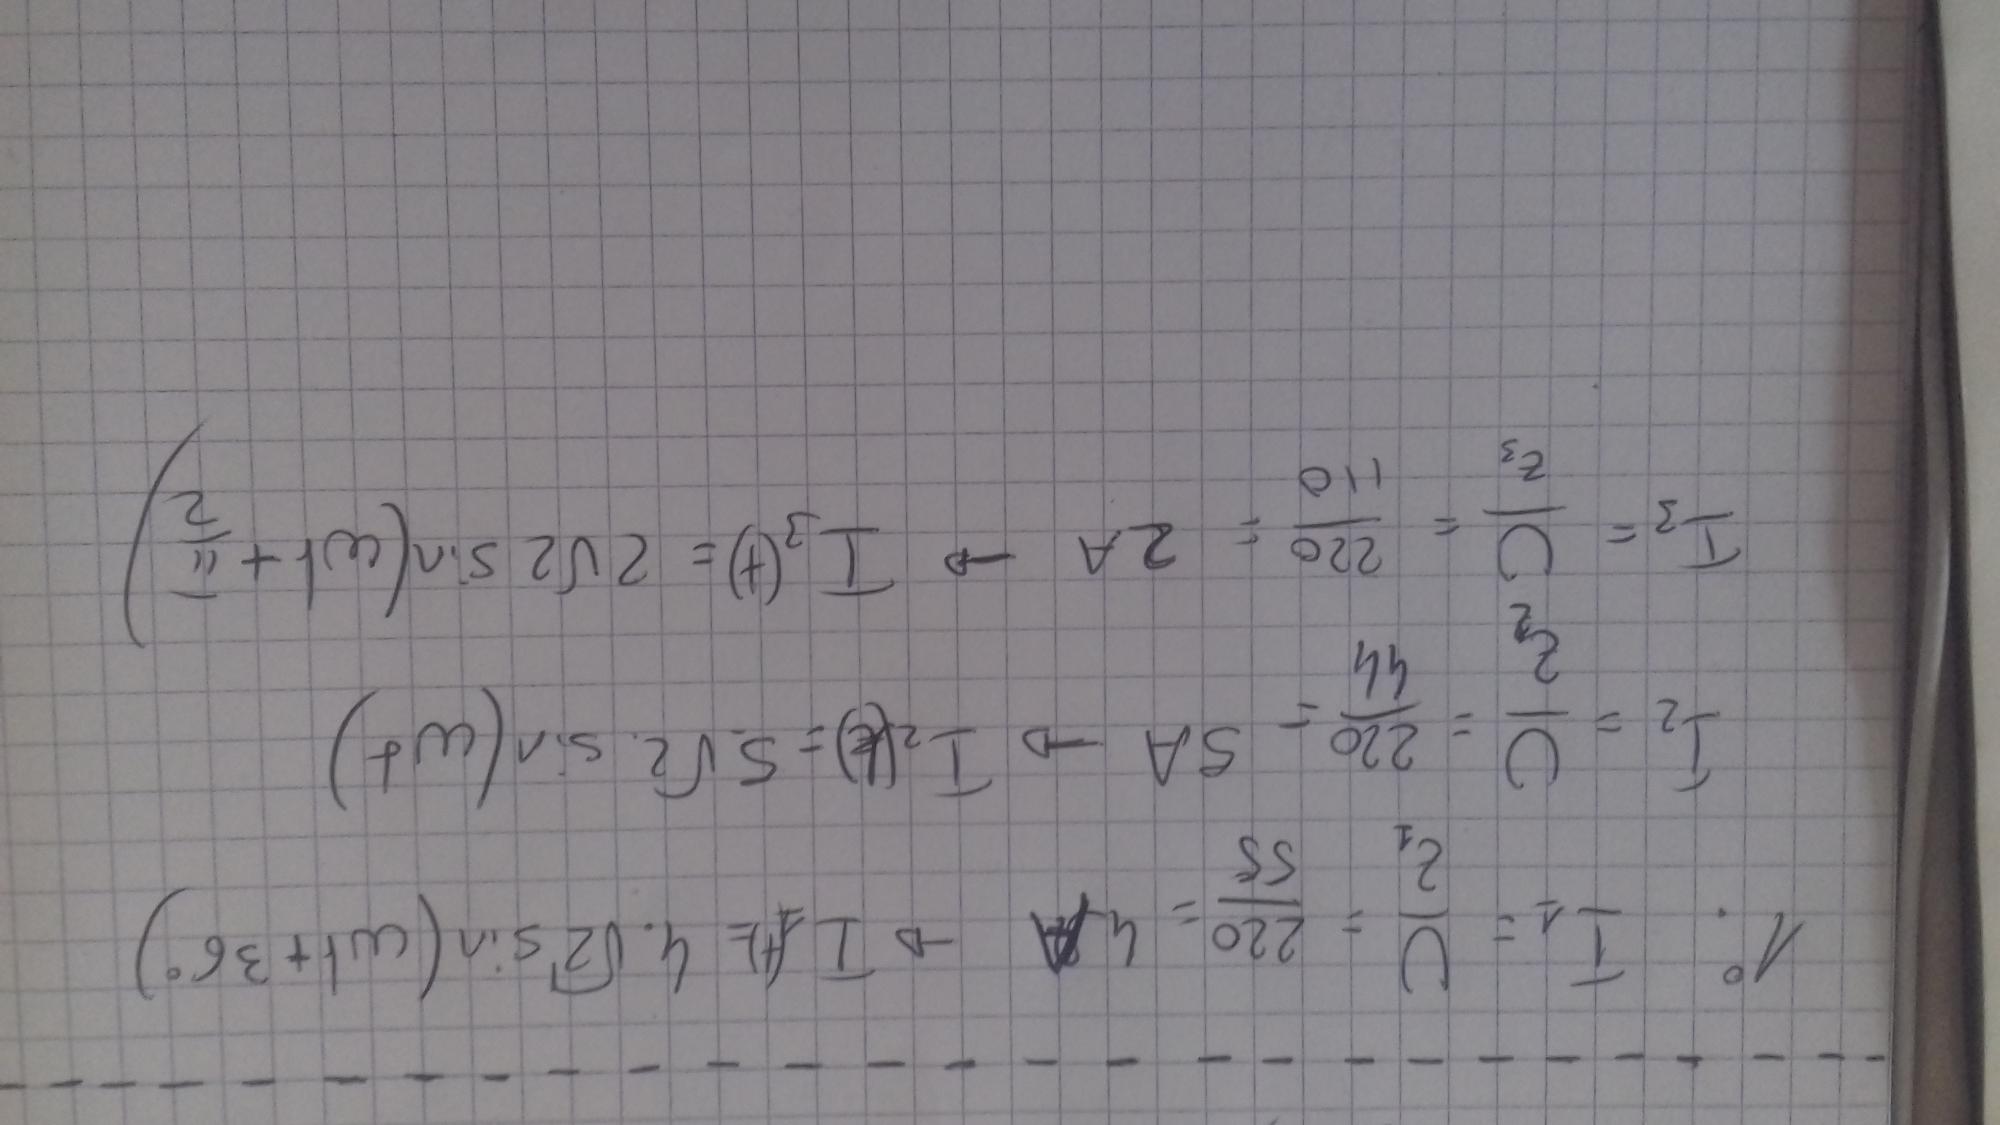 1°. I1 = U/Z1 = 220/55 = 4A → I1(t) = 4.√2 sin(ωt + 36°)
I2 = U/Z2 = 220/44 = 5A → I2(t) = 5.√2. sin(ωt)
I3 = U/Z3 = 220/110 = 2A → I3(t) = 2√2 sin(ωt + π/2)